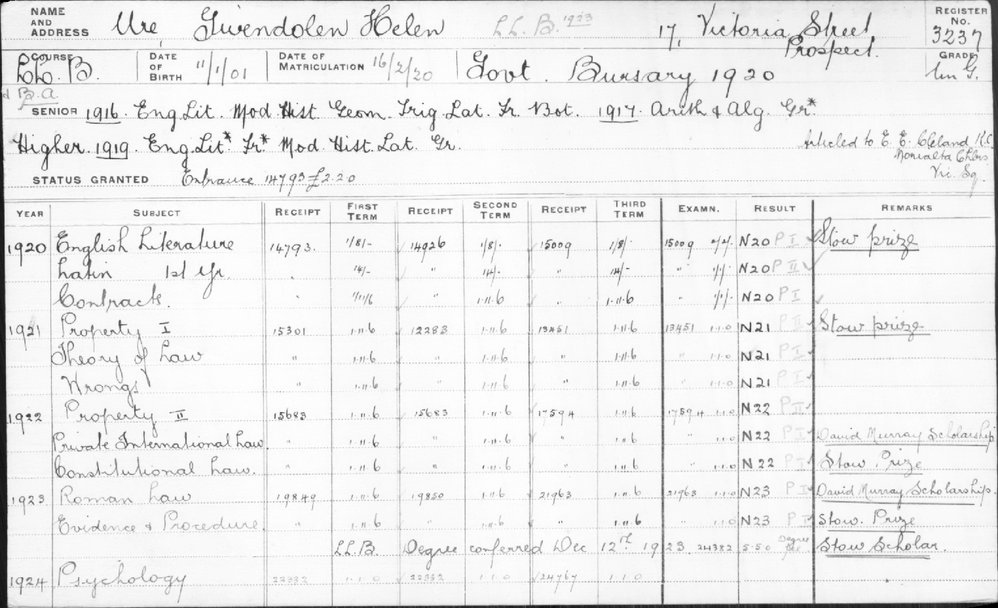 NAME AND ADDRESS Ure, Gwendolen Helen LL.B. 1923 17, Victoria Street Prospect. REGISTER No. 3237
COURSE LL.B. DATE OF BIRTH 11/1/01 DATE OF MATRICULATION 16/2/20 Govt. Bursary 1920 GRADE
B.A.
SENIOR 1916. Eng. Lit. Mod Hist. Geom. Trig. Lat. Fr. Bot. 1917. Arith & Alg. Gr*
Higher 1919. Eng. Lit* Fr* Mod Hist. Lat. Gr. Articled to E. E. Cleland K.C.
Morialta Chbrs
Vic. Sq.
STATUS GRANTED Entrance 14793 £2.2.0
YEAR SUBJECT RECEIPT FIRST TERM RECEIPT SECOND TERM RECEIPT THIRD TERM EXAMN. RESULT REMARKS
1920 English Literature 14793. 1/8/- 14926 1/8/- 15009 1/8/- 15009 N20 P I Stow prize
Latin 1st Yr. " 14/- " 14/- " 14/- " N20 P II
Contracts. " 1/11/6 " 1.11.6 " 1.11.6 " N20 P I
1921 Property I 15301 1.11.6 12283 1.11.6 13451 1.11.6 13451 1.1.0 N21 P II Stow prize
Theory of Law " 1.11.6 " 1.11.6 " 1.11.6 " 1.1.0 N21 P I
Wrongs " 1.11.6 " 1.11.6 " 1.11.6 " 1.1.0 N21 P I
1922 Property II 15683 1.11.6 15683 1.11.6 17594 1.11.6 17594 1.1.0 N22 P II
Private International Law. " 1.11.6 " 1.11.6 " 1.11.6 " 1.1.0 N22 P I David Murray Scholarship
Constitutional Law. " 1.11.6 " 1.11.6 " 1.11.6 " 1.1.0 N22 P I Stow Prize
1923 Roman Law 19849 1.11.6 19850 1.11.6 21963 1.11.6 21963 1.1.0 N23 P I David Murray Scholarships.
Evidence & Procedure. " 1.11.6 " 1.11.6 " 1.11.6 " 1.1.0 N23 P I Stow. Prize
LL.B. Degree conferred Dec 12th 1923 24382 5.5.0 Degree fee Stow Scholar.
1924 Psychology 22332 1.1.0 22332 1.1.0 24767 1.1.0